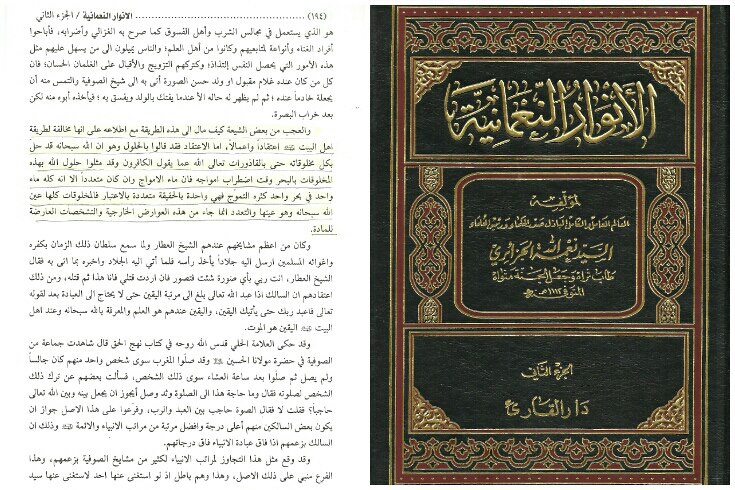 (١٩٤) ................ الانوار النعمانية / الجزء الثاني
هو الذي يستعمل في مجالس الشرب وأهل الفسوق كما صرح به الغزالي وأضرابه، فأباحوا
أفراد الغناء وأنواعه لمتابعيهم وكانوا من أهل العلم؛ والناس يميلون الى من يسهل عليهم مثل
هذه الأمور التي يحصل النفس إلتذاذ؛ وكتركهم التزويج والأقبال على الغلمان الحسان؛ فان
كل من كان عنده غلام مقبول او ولد حسن الصورة أتى به الى شيخ الصوفية والتمس منه أن
يجعله خادماً عنده؛ ثم لم يظهر له حاله الاّ عندما يفتك بالولد ويفسق به؛ فيأخذه أبوه منه لكن
بعد خراب البصرة.
والعجب من بعض الشيعة كيف مال الى هذه الطريقة مع اطلاعه على انها مخالفة لطريقة
اهل البيت عليهم السلام اعتقاداً واعمالاً، اما الاعتقاد فقد قالوا بالحلول وهو ان الله سبحانه قد حلّ
بكل مخلوقاته حتى بالقاذورات تعالى الله عما يقول الكافرون وقد مثلوا حلول الله بهذه
المخلوقات بالبحر وقت اضطراب امواجه فان ماء الامواج وان كان متعدداً الا انه كله ماء
واحد في بحر واحد كثره التموج فهي واحدة بالحقيقة متعددة بالاعتبار فالمخلوقات كلها عين
الله سبحانه وهو عينها والتعدد انما جاء من هذه العوارض الخارجية والتشخصات العارضة
للمادة.
وكان من اعظم مشايخهم عندهم الشيخ العطار ولما سمع سلطان ذلك الزمان بكفره
واغوائه المسلمين ارسل اليه جلاداً يأخذ رأسه فلما أتي اليه الجلاد واخبره بما اتى به فقال
الشيخ العطار، انت ربي بأي صورة شئت فتصور فان اردت قتلي فانا هذا ثم قتله، ومن ذلك
اعتقادهم ان السالك اذا عبد الله تعالى بلغ الى مرتبة اليقين حتى لا يحتاج الى العبادة بعد لقوله
تعالى فاعبد ربك حتى يأتيك اليقين، واليقين عندهم هو العلم والمعرفة بالله سبحانه وعند اهل
البيت عليهم السلام اليقين هو الموت.
وقد حكى العلامة الحلي قدس الله روحه في كتاب نهج الحق قال شاهدت جماعة من
الصوفية في حضرة مولانا الحسين عليه السلام وقد صلّوا المغرب سوى شخص واحد منهم كان جالساً
ولم يصل ثم صلّوا بعد ساعة العشاء سوى ذلك الشخص، فسألت بعضهم عن ترك ذلك
الشخص لصلوته فقال وما حاجة هذا الى الصلوة وقد وصل أيجوز ان يجعل بينه وبين الله تعالى
حاجباً؟ فقلت لا فقال الصوة حاجب بين العبد والرب، وفرعوا على هذا الاصل جواز ان
يكون بعض السالكين منهم أعلى درجة وافضل مرتبة من مراتب الانبياء والائمة عليهم السلام وذلك ان
السالك بزعمهم اذا فاق عبادة الانبياء فاق درجاتهم.
وقد وقع مثل هذا التتجاوز لمراتب الانبياء لكثير من مشايخ الصوفية بزعمهم، وهذا
الفرع مبني على ذلك الاصل، وهذا وهم باطل اذ لو استغنى عنها احد لاستغنى عنها سيد
الأنوار النعمانية
لمؤلفه
العالم العامل والكامل الباذل صدر الحكماء ورئيس العلماء
السيد نعمة الله الجزائري
طاب ثراه وجعل الجنة مثواه
المتوفى ١١١٢ هـ
الجزء الثاني
دار القارئ